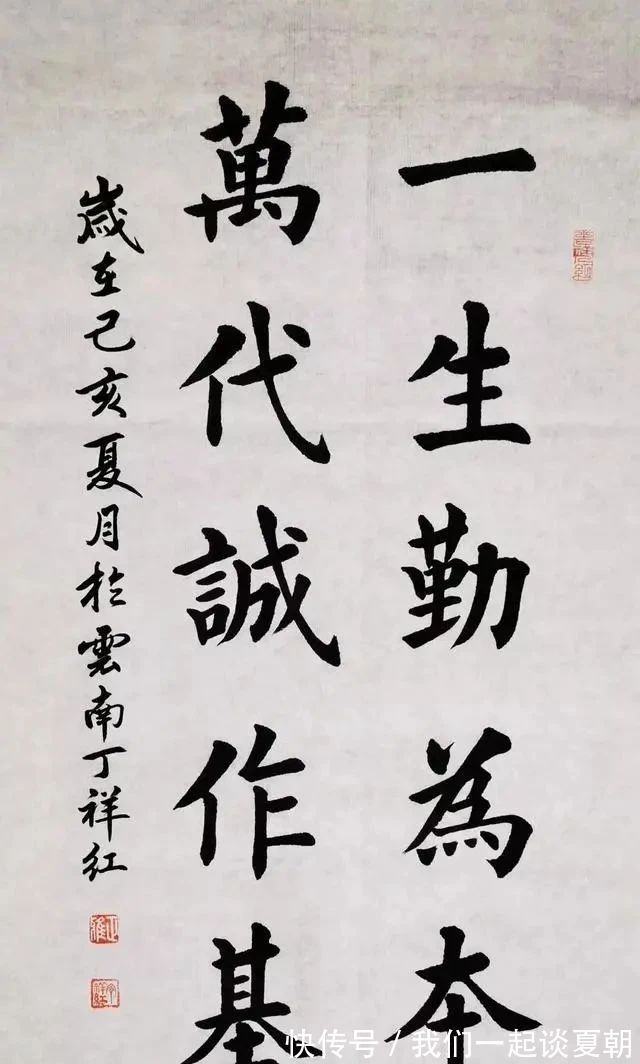 一生勤為本
萬代誠作基
歲在己亥夏月於雲南丁祥紅
快传号 / 我们一起谈夏朝